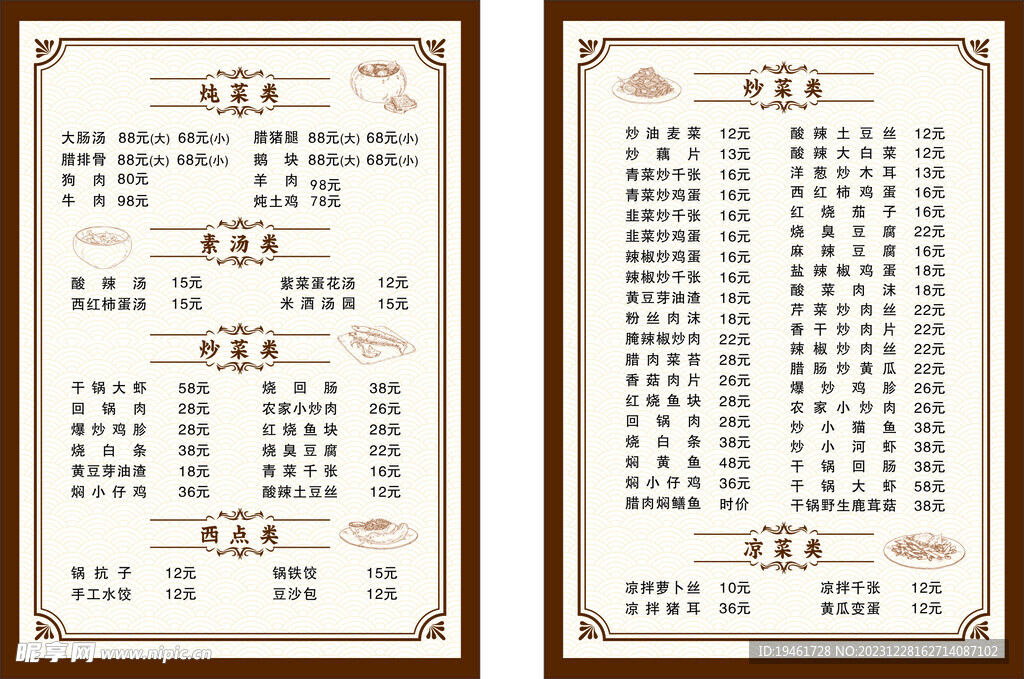 炖菜类
大肠汤 88元(大) 68元(小) 腊猪腿 88元(大) 68元(小)
腊排骨 88元(大) 68元(小) 鹅块 88元(大) 68元(小)
狗肉 80元 羊肉 98元
牛肉 98元 炖土鸡 78元
素汤类
酸辣汤 15元 紫菜蛋花汤 12元
西红柿蛋汤 15元 米酒汤园 15元
炒菜类
干锅大虾 58元 烧回肠 38元
回锅肉 28元 农家小炒肉 26元
爆炒鸡胗 28元 红烧鱼块 28元
烧白条 38元 烧臭豆腐 22元
黄豆芽油渣 18元 青菜千张 16元
焖小仔鸡 36元 酸辣土豆丝 12元
西点类
锅抗子 12元 锅铁饺 15元
手工水饺 12元 豆沙包 12元
炒菜类
炒油麦菜 12元
炒藕片 13元
青菜炒千张 16元
青菜炒鸡蛋 16元
韭菜炒千张 16元
韭菜炒鸡蛋 16元
辣椒炒鸡蛋 16元
辣椒炒千张 16元
黄豆芽油渣 18元
粉丝肉沫 18元
腌辣椒炒肉 22元
腊肉菜苔 28元
香菇肉片 26元
红烧鱼块 28元
回锅肉 28元
烧白条 38元
焖黄鱼 48元
焖小仔鸡 36元
腊肉焖鳝鱼 时价
酸辣土豆丝 12元
酸辣大白菜 12元
洋葱炒木耳 13元
西红柿鸡蛋 16元
红烧茄子 16元
烧臭豆腐 22元
麻辣豆腐 16元
盐辣椒鸡蛋 18元
酸菜肉沫 18元
芹菜炒肉丝 22元
香干炒肉片 22元
辣椒炒肉丝 22元
腊肠炒黄瓜 22元
爆炒鸡胗 26元
农家小炒肉 26元
炒小猫鱼 38元
炒小河虾 38元
干锅回肠 38元
干锅大虾 58元
干锅野生鹿茸菇 38元
凉菜类
凉拌萝卜丝 10元 凉拌千张 12元
凉拌猪耳 36元 黄瓜变蛋 12元
昵享网 www.nipic.cn
ID:19461728 NO:20231228162714087102